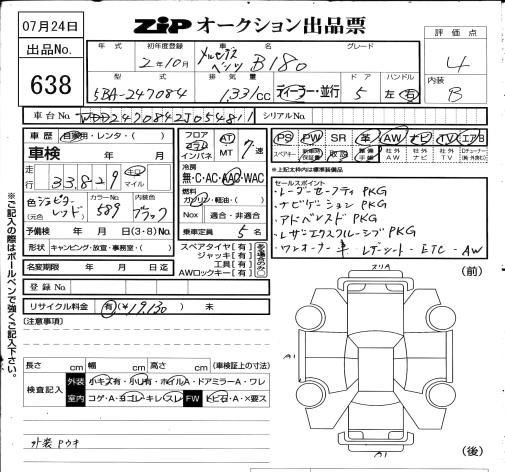 07月24日
ZIP オークション出品票
出品No.
638
年式
初年度登録
2年10月
車名
メルセデスベンツ B180
グレード
評価点
4
型式
5BA-247084
排気量
1,331cc
ディーラー・並行
ドア
5
ハンドル
左 右
内装
B
車台No.
シリアルNo.
車歴 自家用・レンタ・( )
フロア コラム インパネ
AT MT 7速
PS PW SR 革 AW ナビ TV エアB
車検 年 月
走行 33,829 キロ マイル
冷房
無・C・AC・AAC・WAC
燃料
ガソリン・軽油・( )
Nox 適合・非適合
乗車定員 5名
色(元色)
カラーNo. 589
内装色 ブラック
予備検 年 月 日 (3・8)No.
形状 キャンピング・放宣・事務室・( )
名変期限 年 月 日迄
登録No.
スペアタイヤ[有]
ジャッキ[有]
工具[有]
AWロックキー[有]
ある場合のみ○
リサイクル料金 有(¥19,130) 未
★上記太枠は純正標準装備
セールスポイント
レーダーセーフティPKG
ナビゲーションPKG
アドバンスドPKG
レザーエクスクルーシブPKG
ワンオーナー車 レザーシート ETC AW
(注意事項)
(前)
A1
A1
(後)
長さ cm 幅 cm 高さ cm (車検証上の寸法)
検査記入
外装 小キズ有・小U有・ホイルA・ドアミラーA・ワレ
室内 コゲ・A・ヨゴレ・キレ・スレ FW トビ石・A・X要ス
外装Pウキ
※ご記入の際はボールペンで強くご記入下さい。